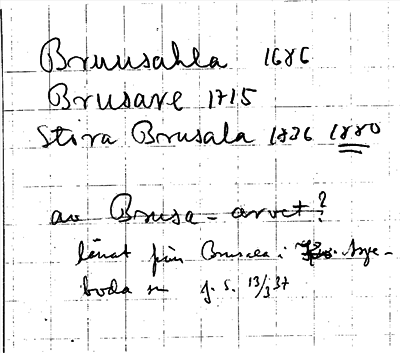 Bruusahla 1686
Brusare 1715
Stora Brusala 1826 1880
av Brusa-arvet?
lånat från Brusala i Arye-
boda sn J.S. 13/3 37